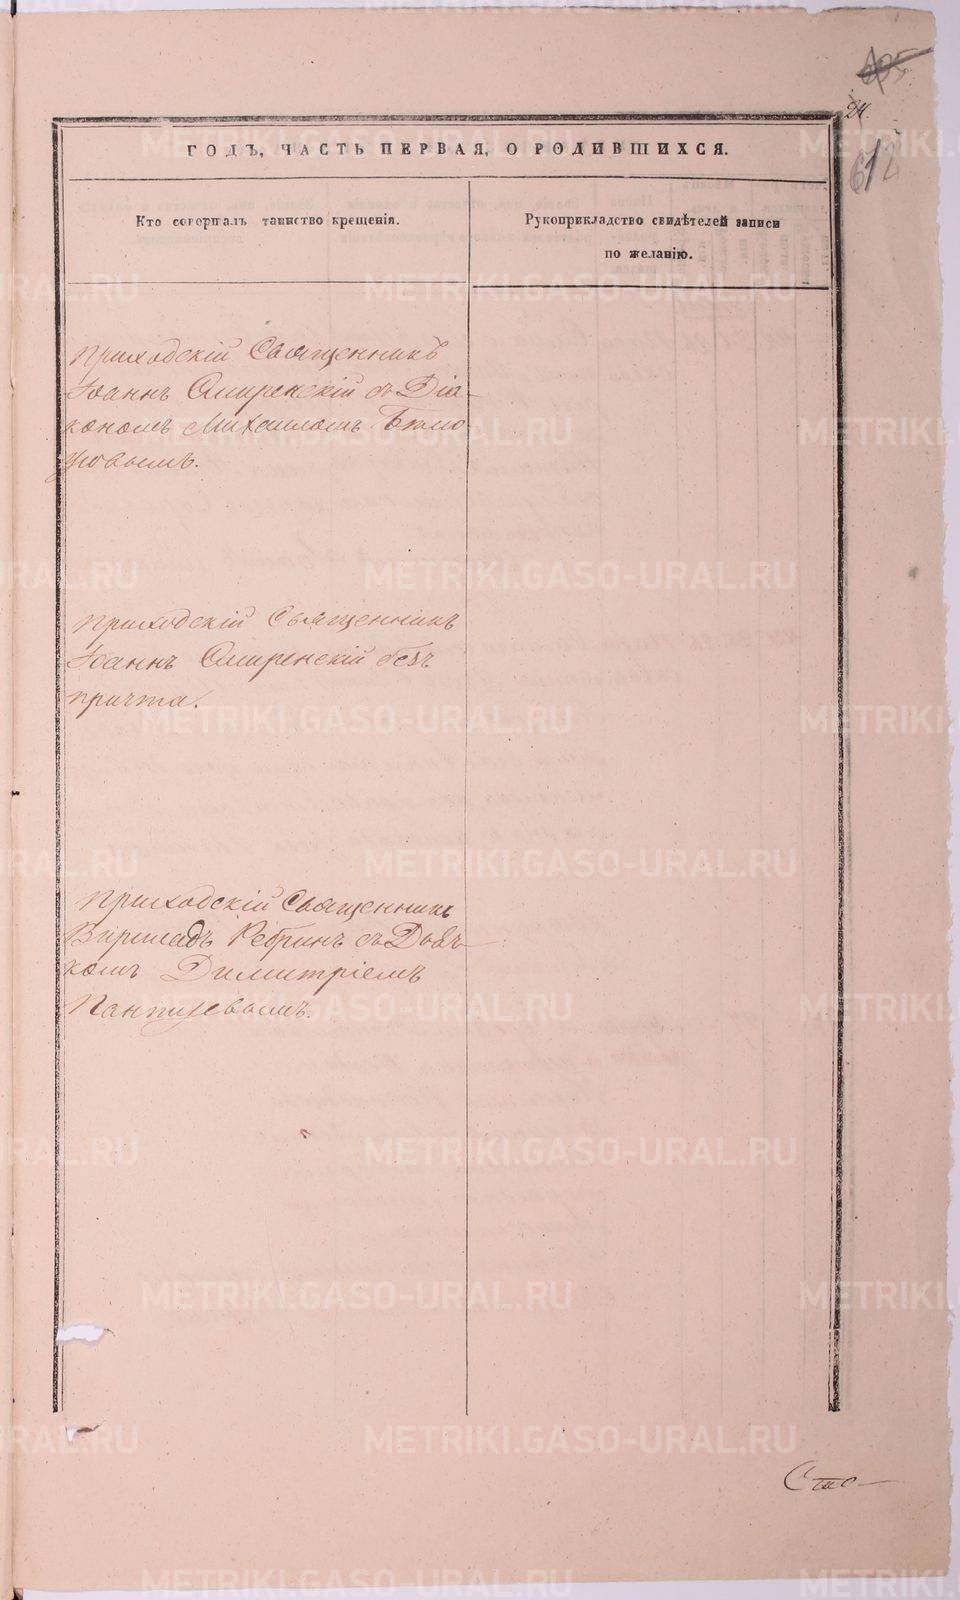 24.
612
ГОДЪ, ЧАСТЬ ПЕРВАЯ, О РОДИВШИХСЯ.
Кто совершалъ таинство крещенія.
Рукоприкладство свидѣтелей записи
по желанію.
Приходскій Священникъ
Іоаннъ Смиренскій съ Діа-
кономъ Михаиломъ
Приходскій Священникъ
Іоаннъ Смиренскій безъ
причта.
Приходскій Священникъ
Ребринъ съ Дьяч-
комъ Димитріемъ
METRIKI.GASO-URAL.RU